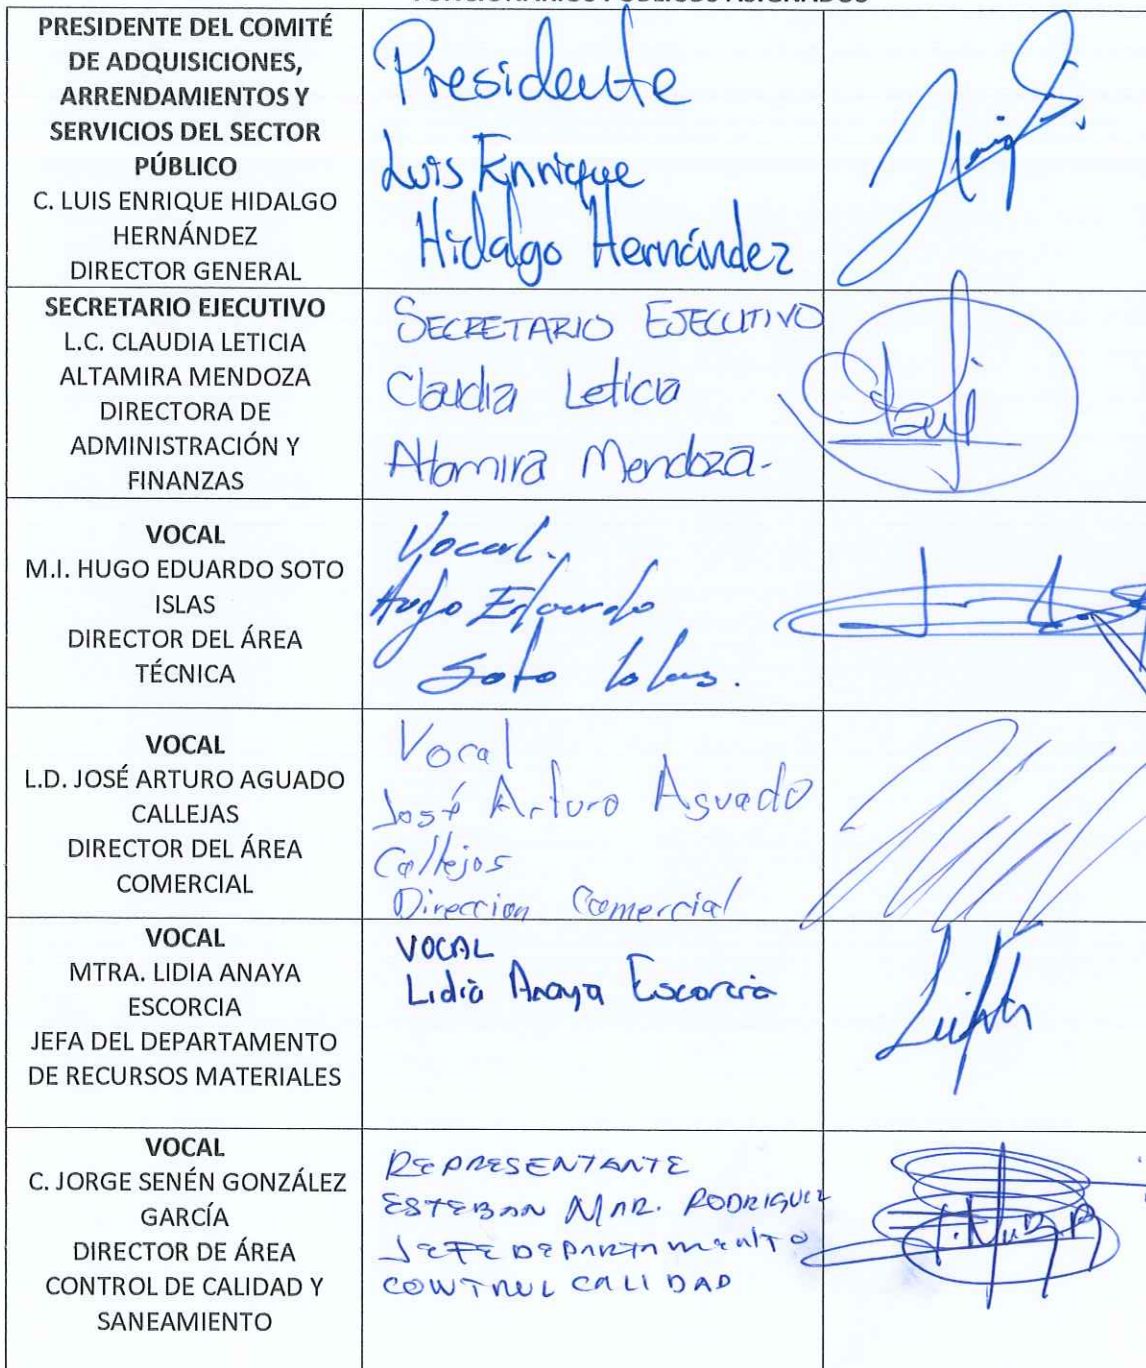 FUNCIONARIOS PÚBLICOS ASIGNADOS
PRESIDENTE DEL COMITÉ
DE ADQUISICIONES,
ARRENDAMIENTOS Y
SERVICIOS DEL SECTOR
PÚBLICO
C. LUIS ENRIQUE HIDALGO
HERNÁNDEZ
DIRECTOR GENERAL
Presidente
Luis Enrique
Hidalgo Hernández
SECRETARIO EJECUTIVO
L.C. CLAUDIA LETICIA
ALTAMIRA MENDOZA
DIRECTORA DE
ADMINISTRACIÓN Y
FINANZAS
SECRETARIO EJECUTIVO
Claudia Leticia
Altamira Mendoza.
VOCAL
M.I. HUGO EDUARDO SOTO
ISLAS
DIRECTOR DEL ÁREA
TÉCNICA
Vocal.
Hugo Eduardo
Soto Islas.
VOCAL
L.D. JOSÉ ARTURO AGUADO
CALLEJAS
DIRECTOR DEL ÁREA
COMERCIAL
Vocal
José Arturo Aguado
Callejas
Direccion Comercial
VOCAL
MTRA. LIDIA ANAYA
ESCORCIA
JEFA DEL DEPARTAMENTO
DE RECURSOS MATERIALES
VOCAL
Lidia Anaya Escorcia
VOCAL
C. JORGE SENÉN GONZÁLEZ
GARCÍA
DIRECTOR DE ÁREA
CONTROL DE CALIDAD Y
SANEAMIENTO
REPRESENTANTE
ESTEBAN MAR. RODRIGUEZ
JEFE DEPARTAMENTO
CONTROL CALIDAD